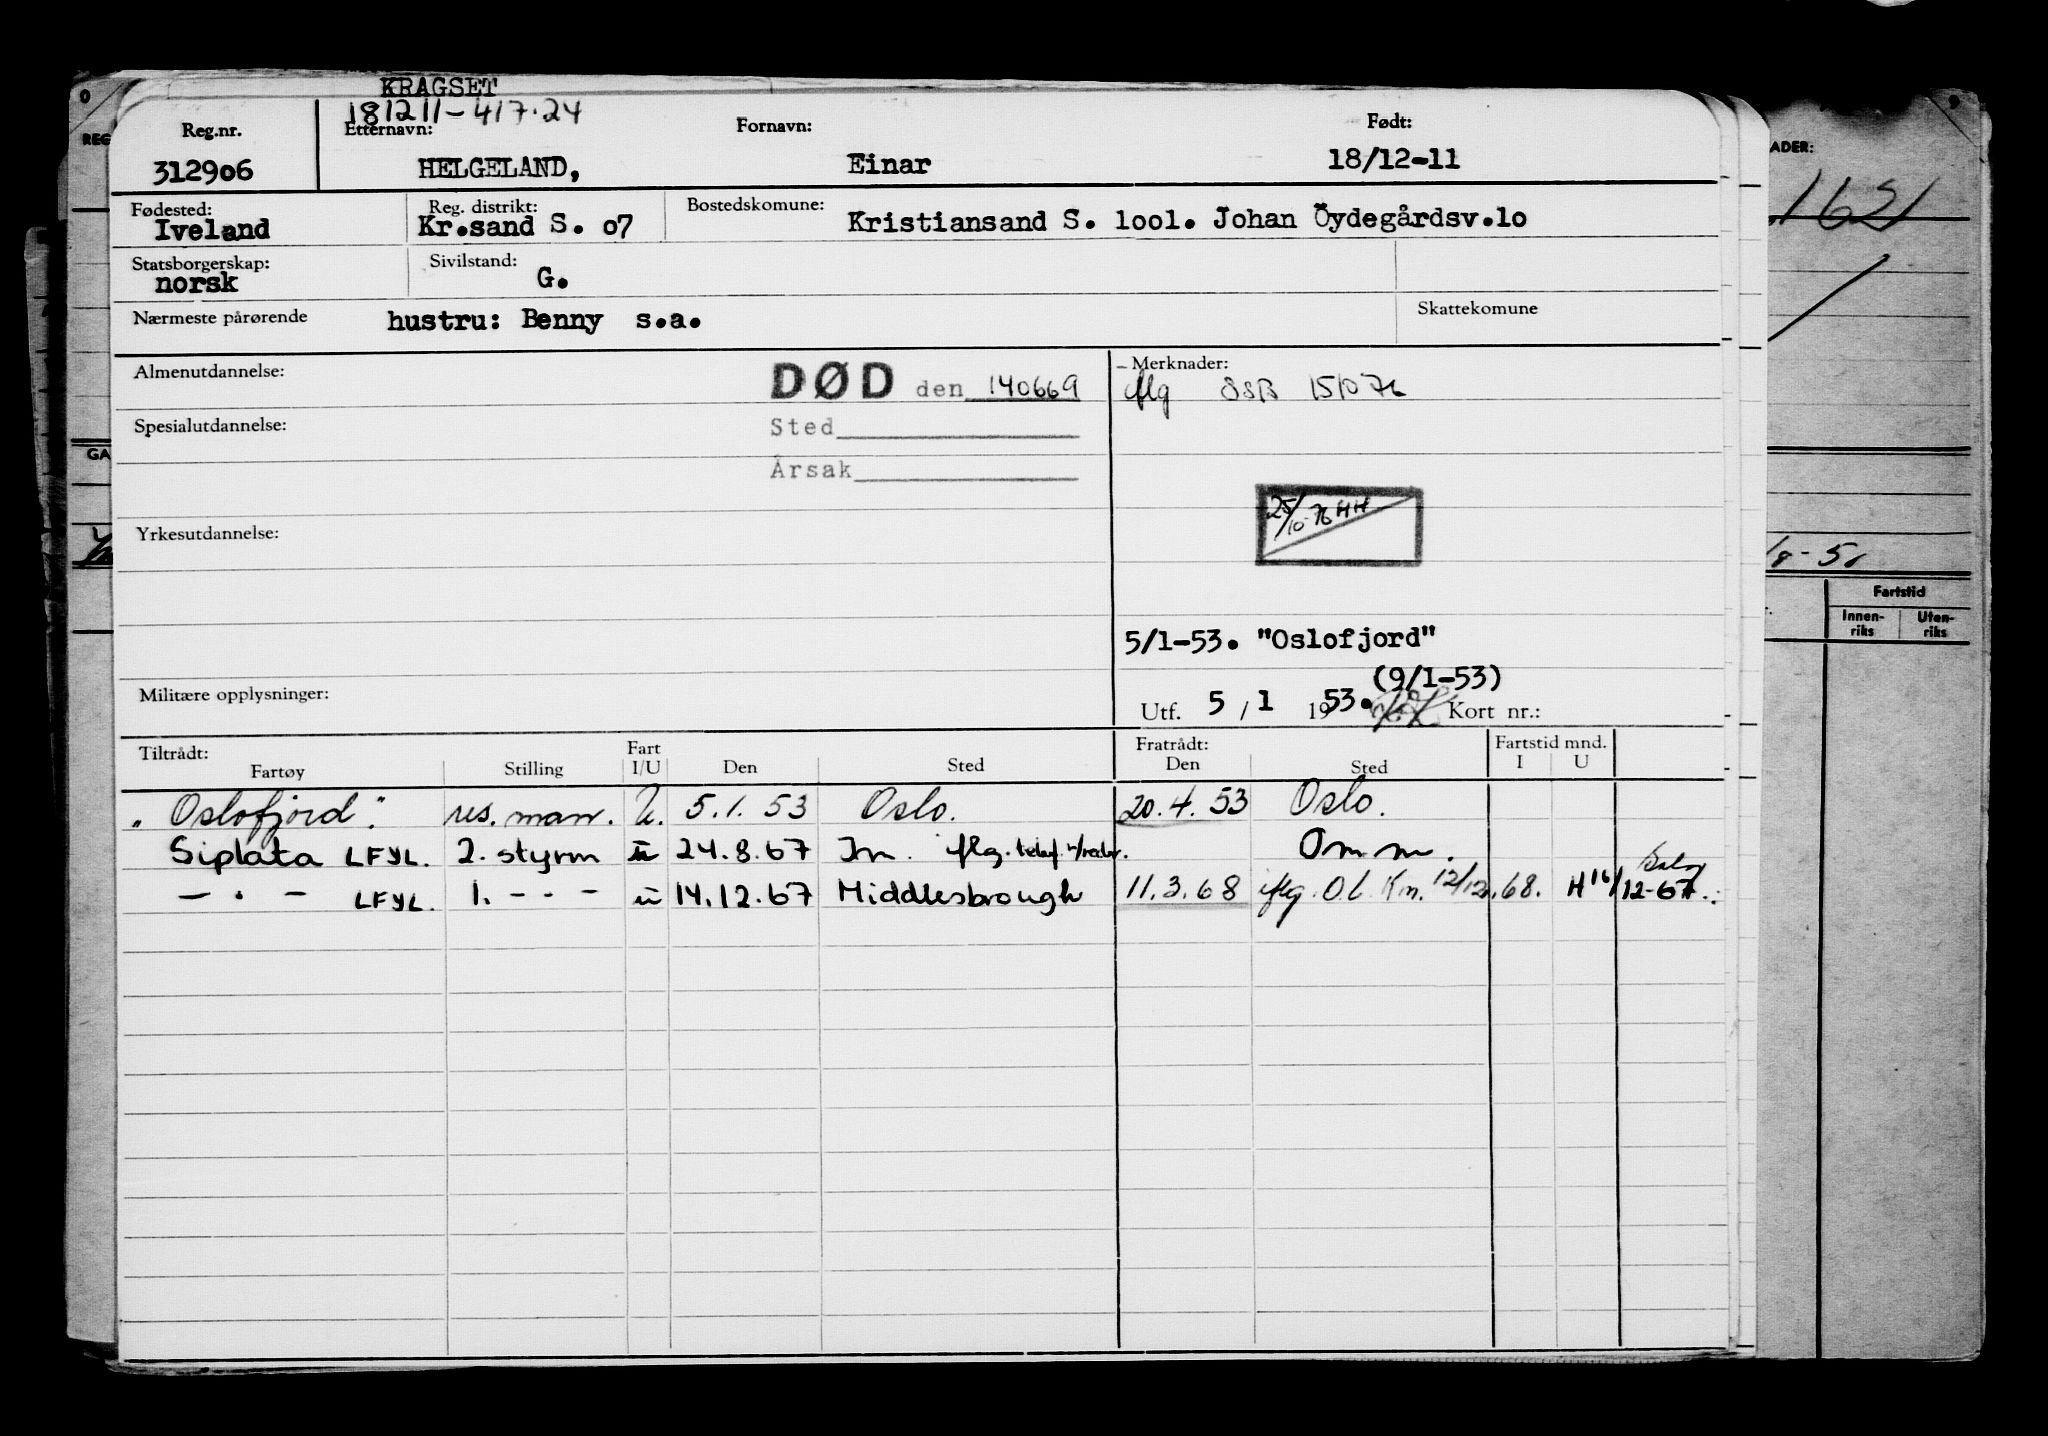 KRAGSET
181211-417.24
Reg.nr. Etternavn: Fornavn: Født:
312906 HELGELAND, Einar 18/12-11
Fødested: Reg. distrikt: Bostedskomune:
Iveland Kr.sand S. o7 Kristiansand S. 1ool. Johan Öydegårdsv.lo
Statsborgerskap: Sivilstand:
norsk G.
Nærmeste pårørende hustru: Benny s.a. Skattekomune
Almenutdannelse: DØD den 140669 Merknader:
iflg SSB 151076
Spesialutdannelse: Sted
Årsak
25/10-76 HH
Yrkesutdannelse:
5/1-53. "Oslofjord"
(9/1-53)
Militære opplysninger: Utf. 5 / 1 1953. Kort nr.:
Tiltrådt: Fart Fratrådt: Fartstid mnd.
Fartøy Stilling I/U Den Sted Den Sted I U
"Oslofjord". res. mann. U. 5.1.53 Oslo. 20.4.53 Oslo.
Siplata LFYL. 2. styrm u 24.8.67 Im. iflg. telef. m/reder. Omm.
— " — LFYL. 1. - " - u 14.12.67 Middlesbrough 11.3.68 iflg. O.l. Km. 12/12.68. H 16/12-67
0
REG
GA
9
ADER:
1621
/8-51
Fartstid
Innen-riks Uten-riks